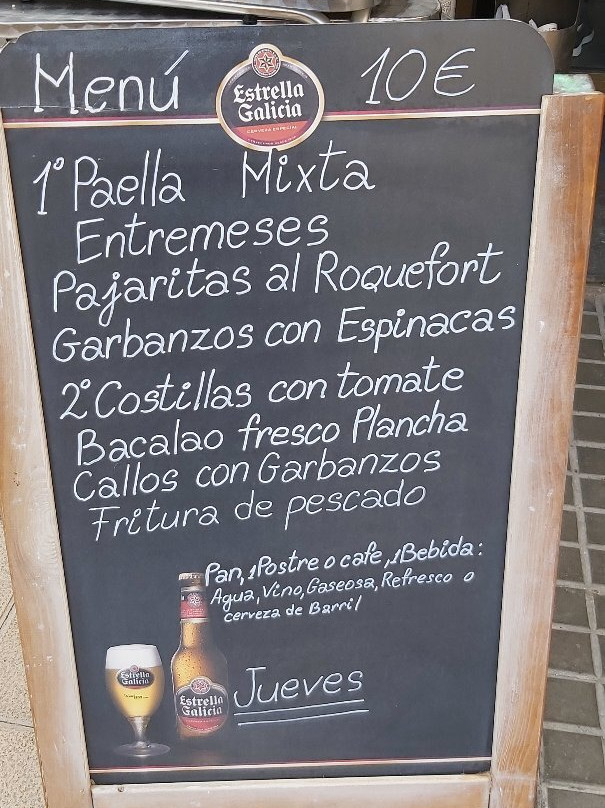 Menú
Estrella
Galicia
CERVEZA ESPECIAL
10€
1º Paella Mixta
Entremeses
Pajaritas al Roquefort
Garbanzos con Espinacas
2º Costillas con tomate
Bacalao fresco Plancha
Callos con Garbanzos
Fritura de pescado
Pan, 1 Postre o cafe, 1 Bebida:
Agua, Vino, Gaseosa, Refresco o
cerveza de Barril
Estrella
Galicia
Estrella
Galicia
Jueves